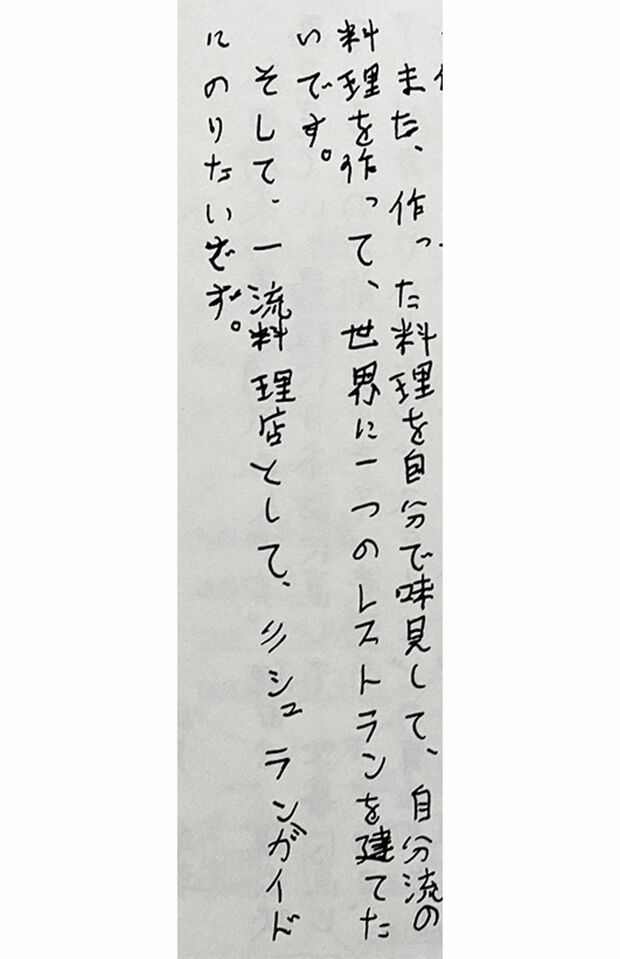 また、作った料理を自分で味見して、自分流の
料理を作って、世界に一つのレストランを建てた
いです。
そして、一流料理店として、ミシュランガイド
にのりたいです。